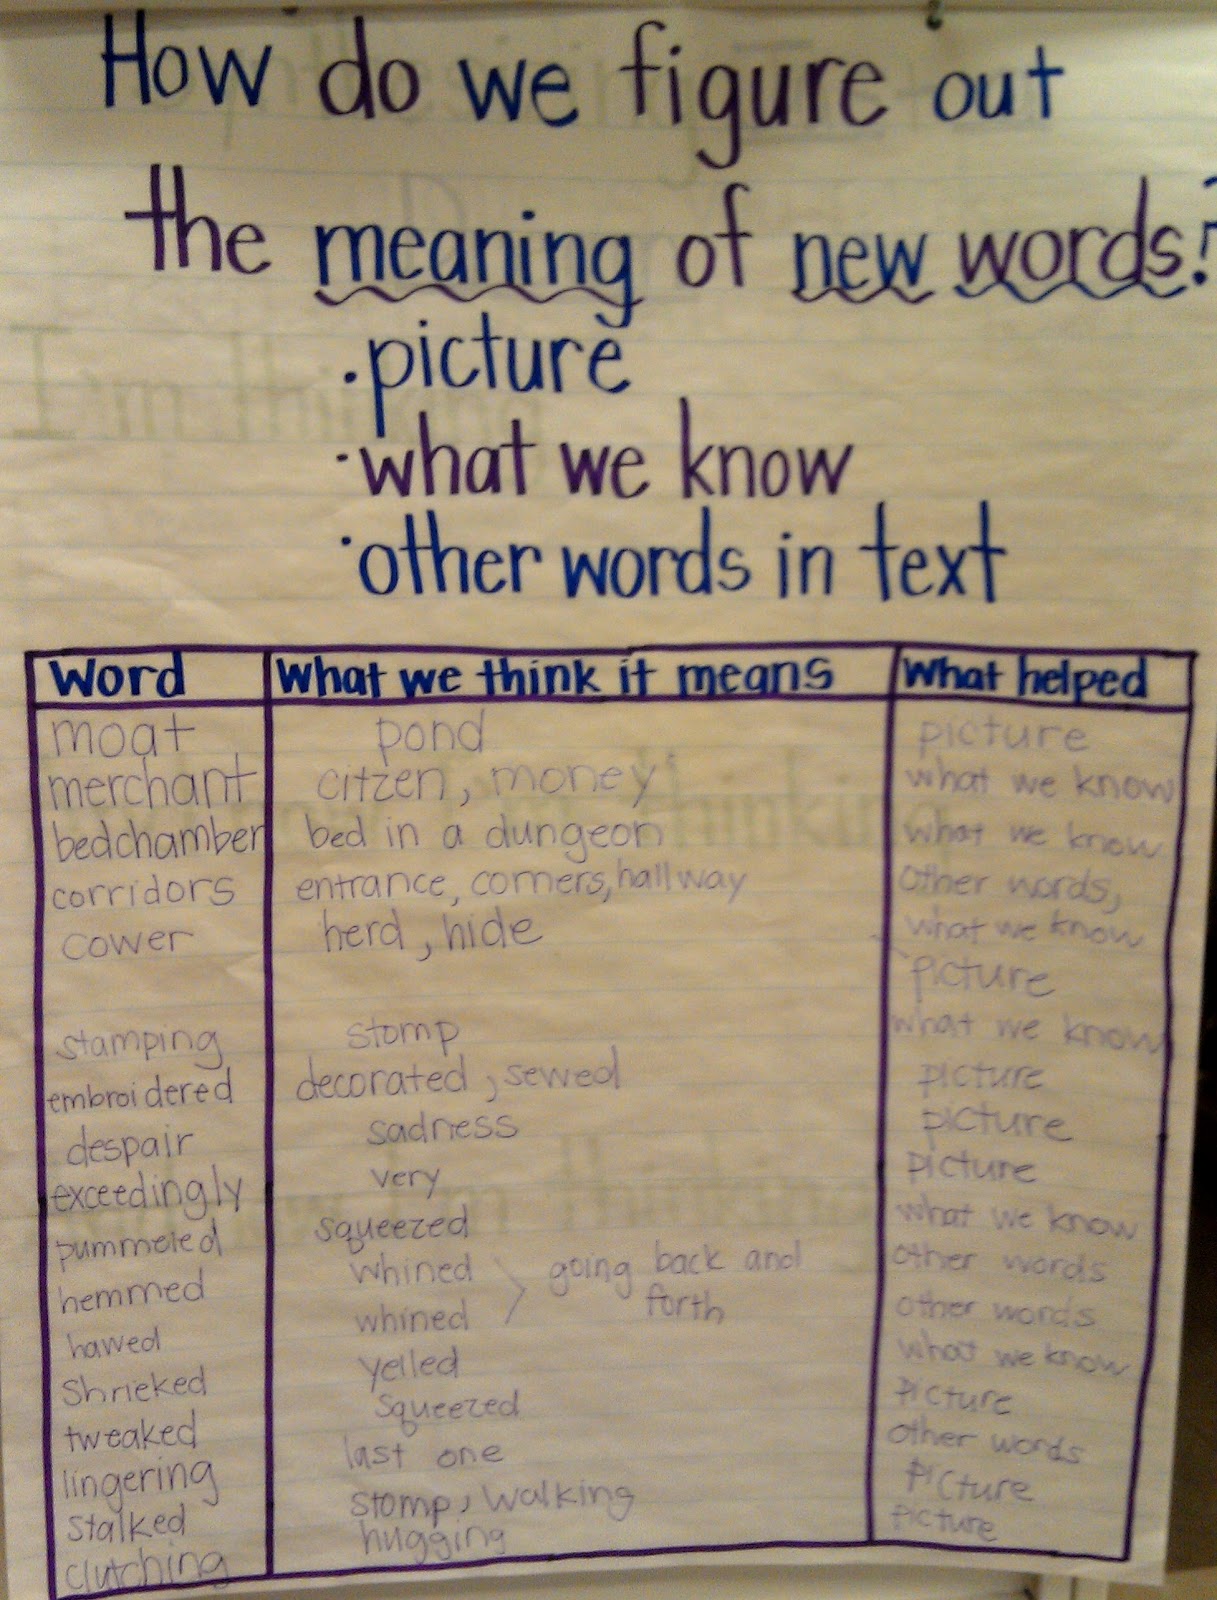 How do we figure out
the meaning of new words?
·picture
·what we know
·other words in text
Word What we think it means What helped
moat pond picture
merchant citzen, money what we know
bedchamber bed in a dungeon what we know
corridors entrance, corners, hallway other words,
cower herd, hide what we know
picture
stamping stomp what we know
embroidered decorated, sewed picture
despair sadness picture
exceedingly very picture
pummeled squeezed what we know
hemmed whined going back and other words
hawed whined forth other words
shrieked yelled what we know
tweaked squeezed picture
lingering last one other words
stalked stomp, walking picture
clutching hugging picture